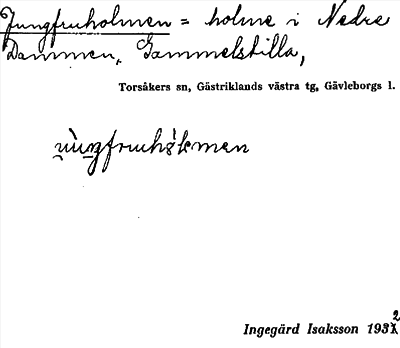 Jungfruholmen = holme i Nedre
Dammen, Gammelstilla,
Torsåkers sn, Gästriklands västra tg, Gävleborgs l.
Ingegärd Isaksson 1932